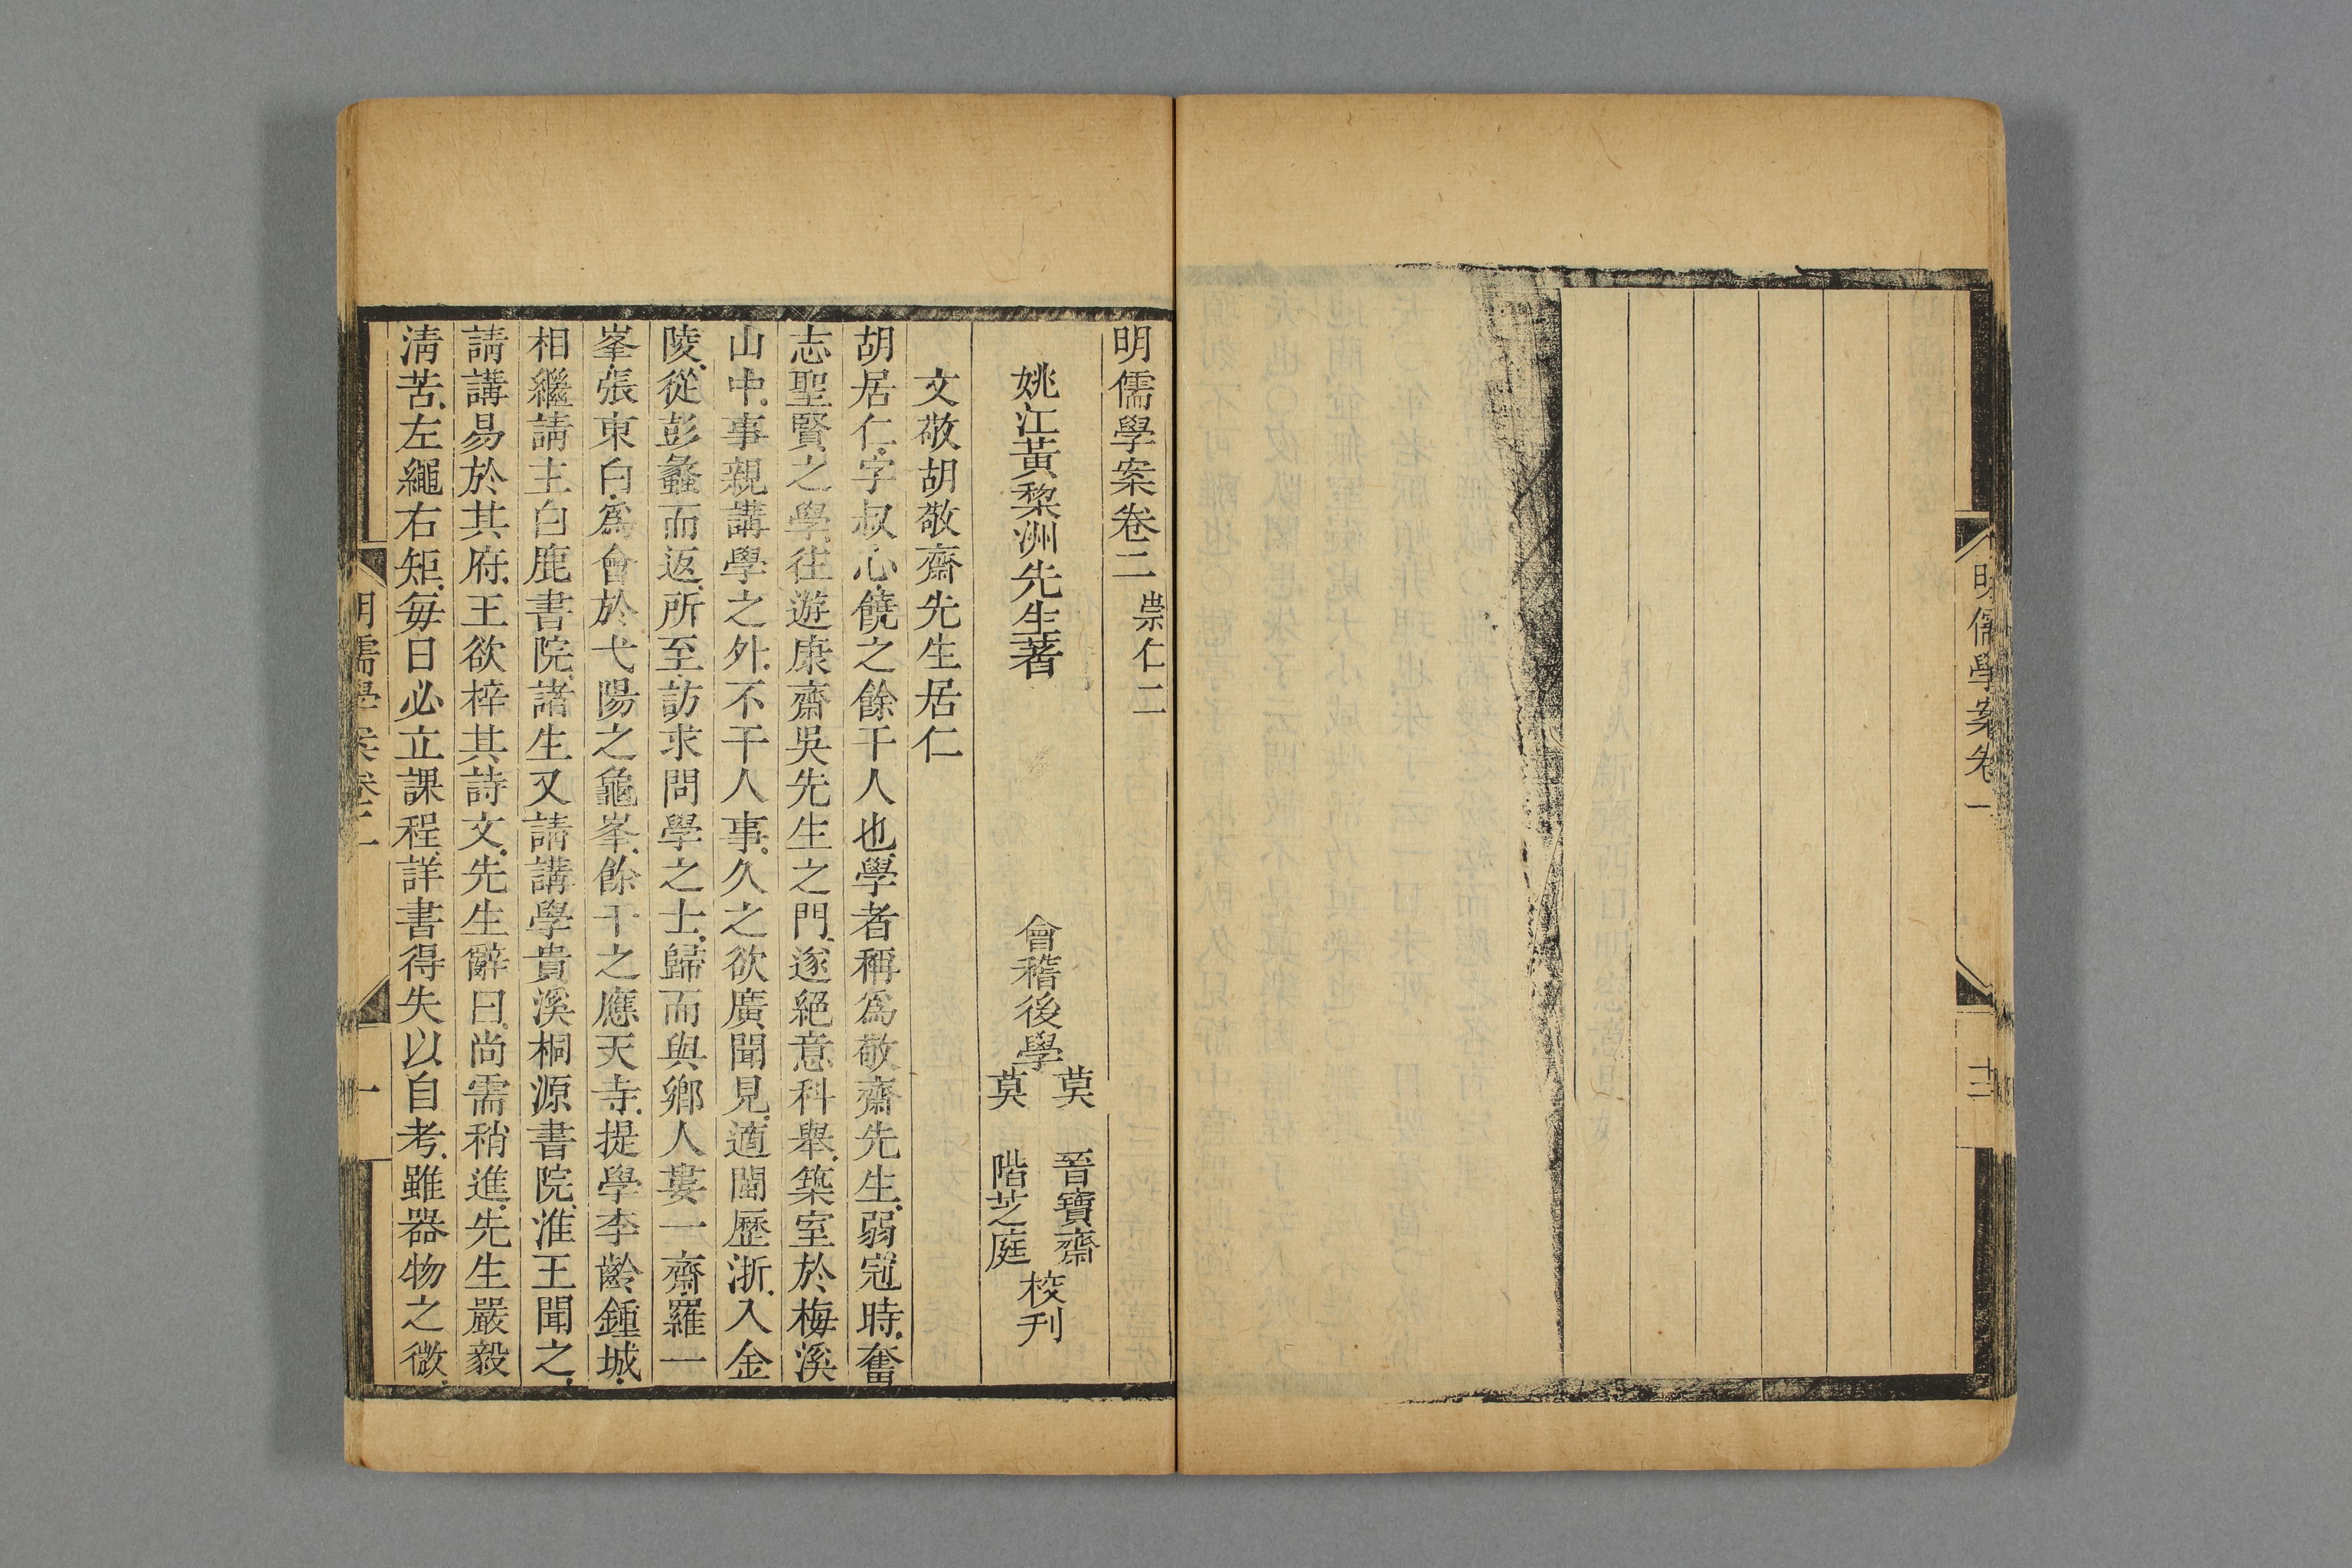 明儒學案卷一
十三
明儒學案卷二 崇仁二
姚江黃棃洲先生著 會稽後學 莫 晉寶齋 莫 階芝庭 校刊
文敬胡敬齋先生居仁
胡居仁字叔心饒之餘干人也學者稱爲敬齋先生弱冦時奮
志聖賢之學往遊康齋吳先生之門遂絕意科舉築室於梅溪
山中事親講學之外不干人事久之欲廣聞見適閩歷浙入金
陵從彭蠡而返所至訪求問學之士歸而與鄉人婁一齋羅一
峯張東白爲會於弋陽之龜峯餘干之應天寺提學李齡鍾城
相繼請主白鹿書院諸生又請講學貴溪桐源書院淮王聞之
請講易於其府王欲梓其詩文先生辭曰尚需稍進先生嚴毅
淸苦左繩右矩每日必立課程詳書得失以自考雖器物之微
明儒學案卷二
一